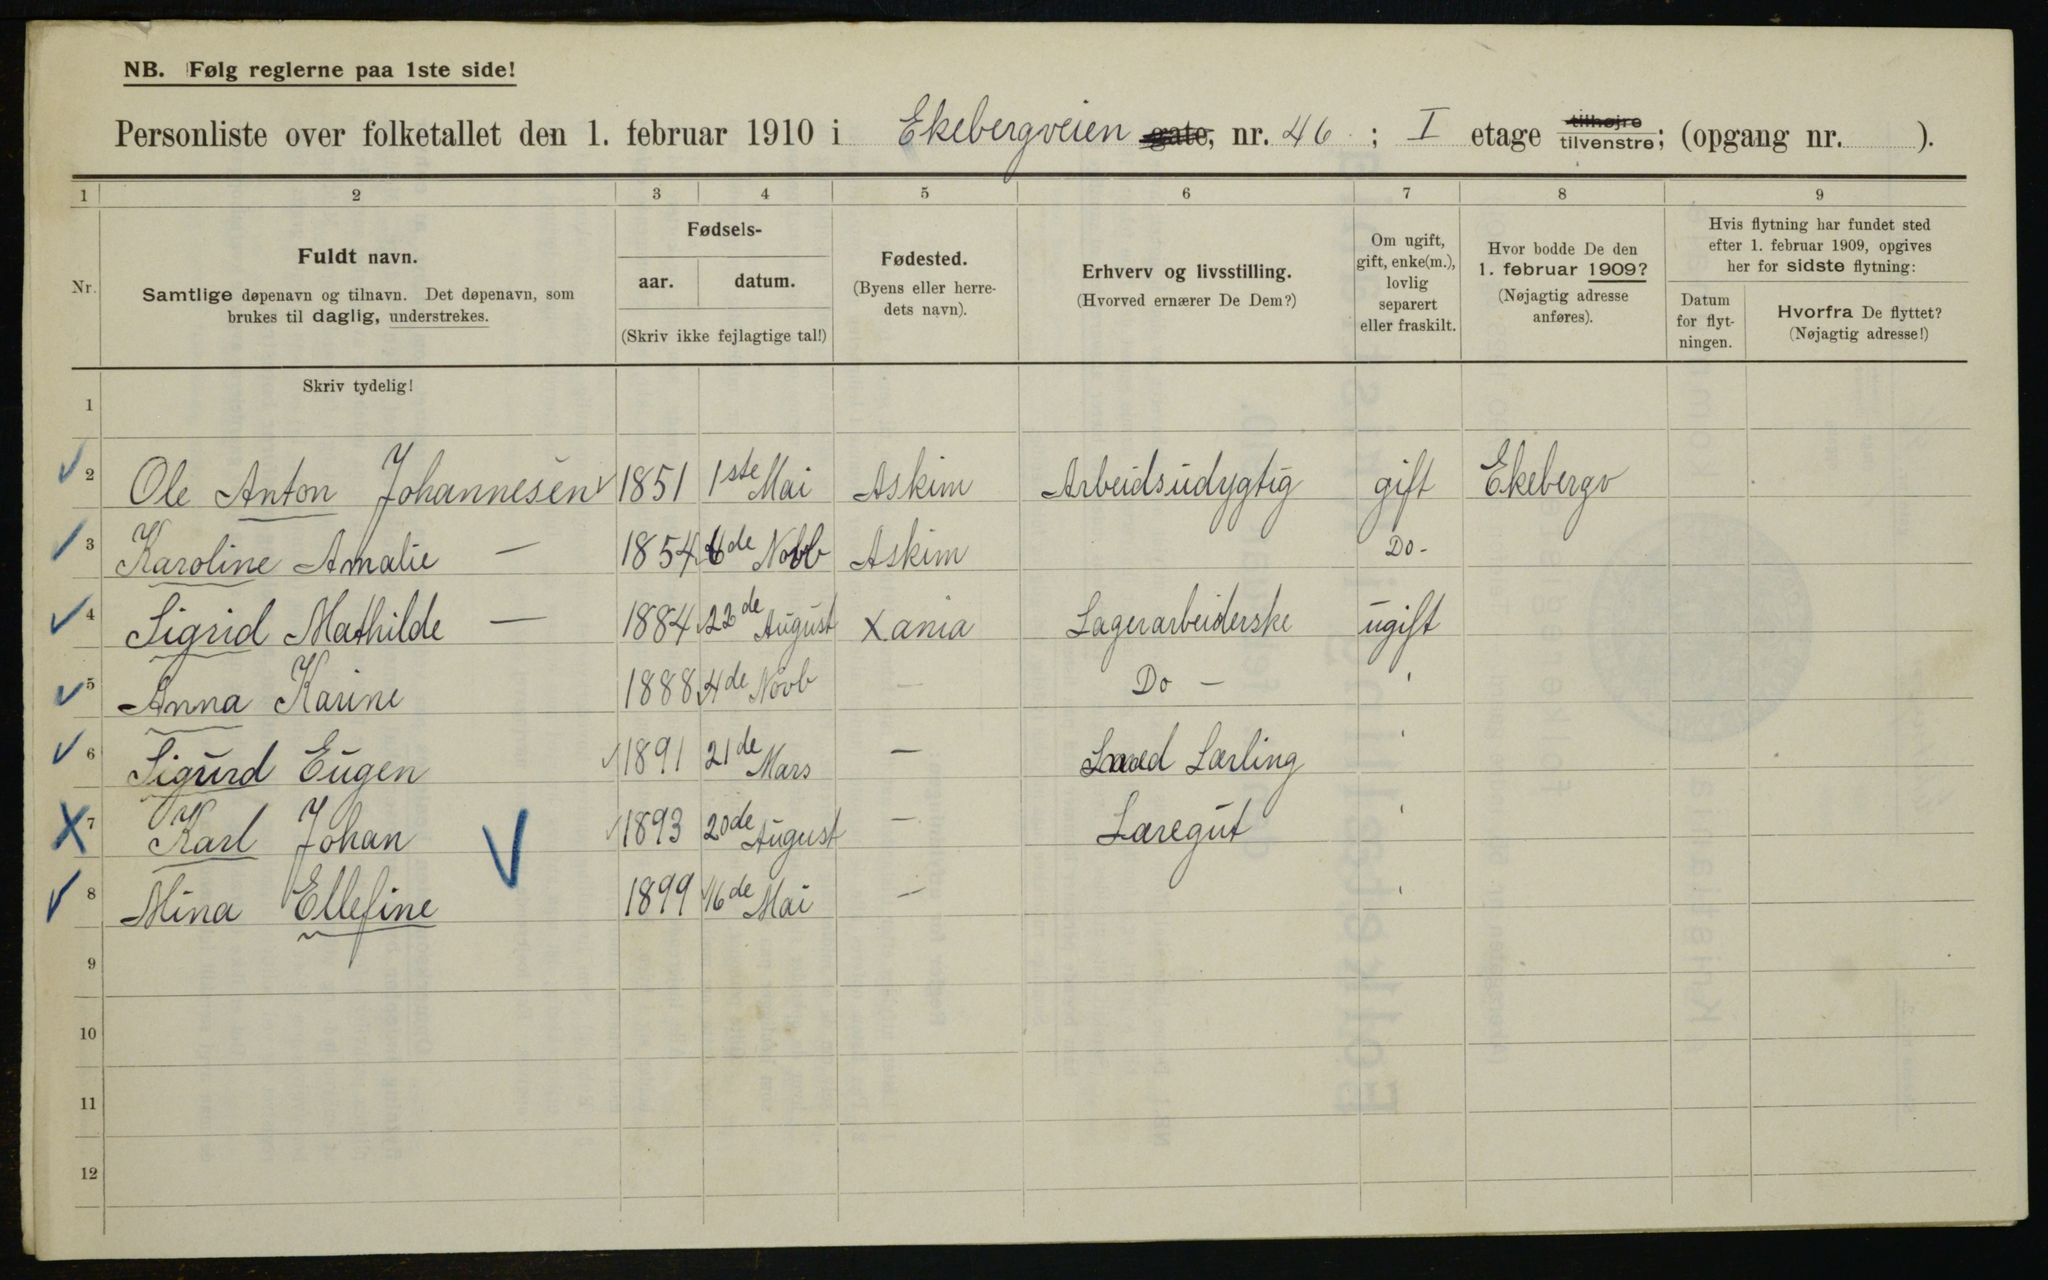 NB. Følg reglerne paa 1ste side!
Personliste over folketallet den 1. februar 1910 i Ekebergveien gate, nr. 46 ; I etage tilhøjre tilvenstre; (opgang nr. ).
1 2 3 4 5 6 7 8 9
Nr.
Fuldt navn.
Samtlige døpenavn og tilnavn. Det døpenavn, som
brukes til daglig, understrekes.
Fødsels-
aar. datum.
(Skriv ikke fejlagtige tal!)
Fødested.
(Byens eller herre-
dets navn).
Erhverv og livsstilling.
(Hvorved ernærer De Dem?)
Om ugift,
gift, enke(m.),
lovlig
separert
eller fraskilt.
Hvor bodde De den
1. februar 1909?
(Nøjagtig adresse
anføres).
Hvis flytning har fundet sted
efter 1. februar 1909, opgives
her for sidste flytning:
Datum
for flyt-
ningen.
Hvorfra De flyttet?
(Nøjagtig adresse!)
Skriv tydelig!
1
2 Ole Anton Johannesen 1851 1ste Mai Askim Arbeidsudygtig gift Ekebergv
3 Karoline Amalie — 1854 6de Novb Askim Do-
4 Sigrid Mathilde — 1884 22de August Xania Lagerarbeiderske ugift
5 Anna Karine 1888 4de Novb — Do — '
6 Sigurd Eugen 1891 21de Mars — Lærling '
7 Karl Johan 1893 20de August — Læregut '
8 Mina Ellefine 1899 16de Mai — '
9
10
11
12